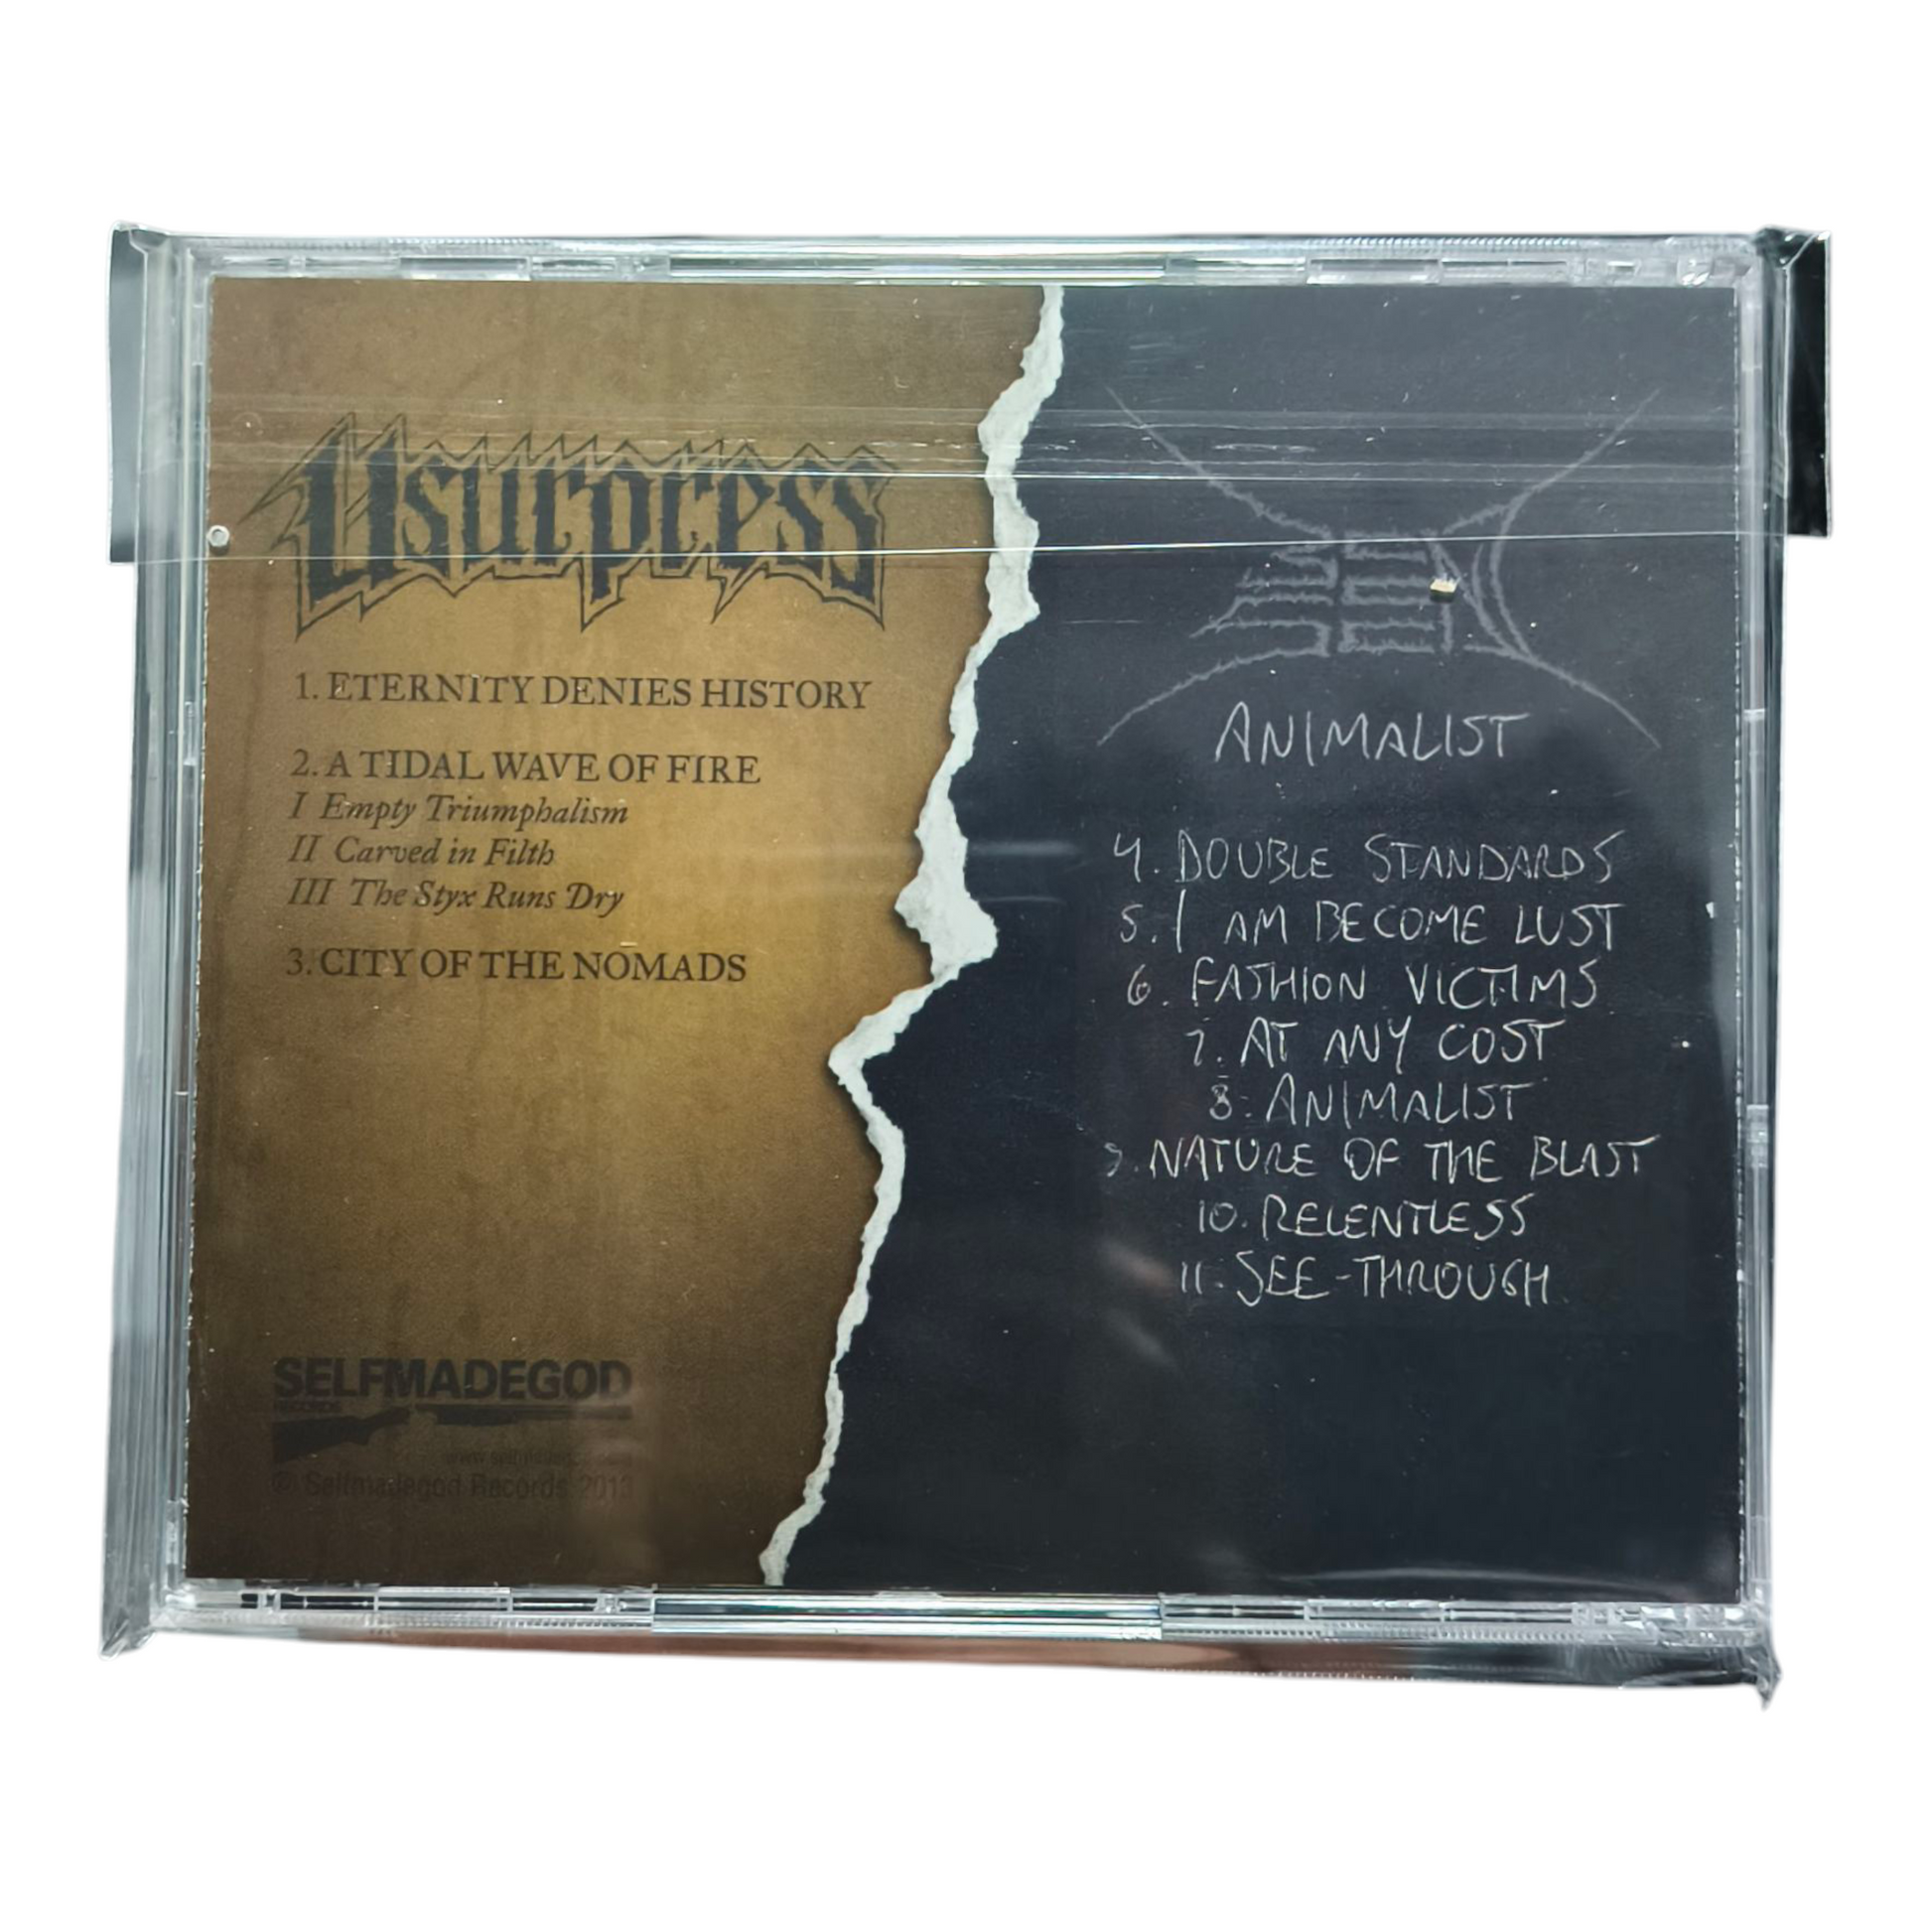 Usurpress
1. ETERNITY DENIES HISTORY
2. A TIDAL WAVE OF FIRE
I Empty Triumphalism
II Carved in Filth
III The Styx Runs Dry
3. CITY OF THE NOMADS
SELFMADEGOD
RECORDS
© Selfmadegod Records 2013
ANIMALIST
4. DOUBLE STANDARDS
5. I AM BECOME LUST
6. FASHION VICTIMS
7. AT ANY COST
8. ANIMALIST
9. NATURE OF THE BLAST
10. RELENTLESS
11. SEE-THROUGH